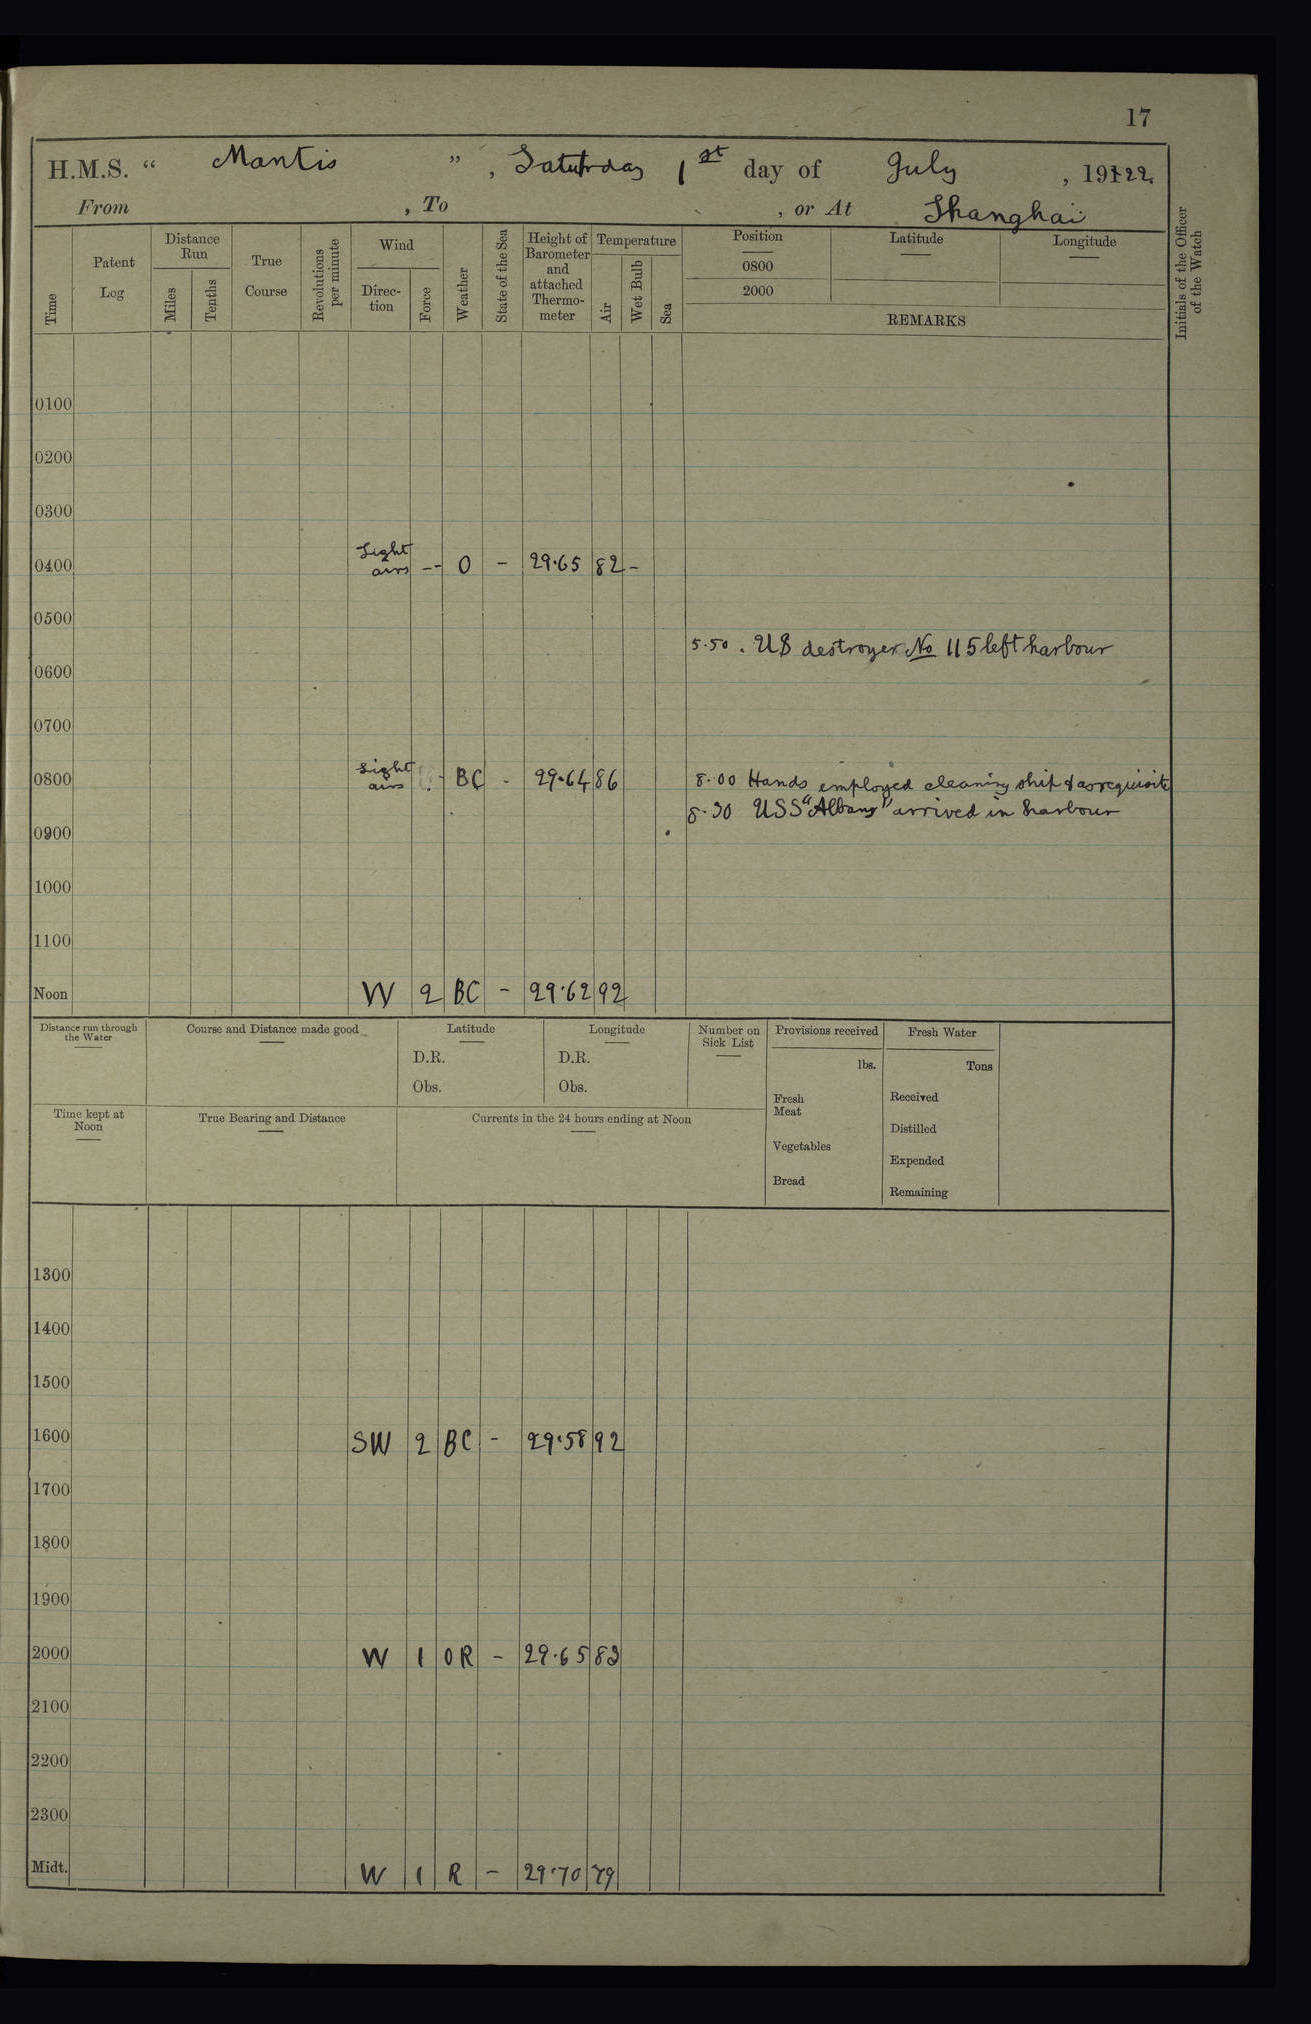 17
H.M.S. “ Mantis ” , Saturday 1st day of July , 1922.
From , To , or At Shanghai
Time
Patent Log
Distance Run
Miles
Tenths
True Course
Revolutions per minute
Wind
Direc-tion
Force
Weather
State of the Sea
Height of Barometer and attached Thermo-meter
Temperature
Air
Wet Bulb
Sea
Position Latitude Longitude
0800
2000
REMARKS
Initials of the Officer of the Watch
0100
0200
0300
0400 Light airs -- O - 29.65 82 -
0500
5.50 . US destroyer No 115 left harbour
0600
0700
0800 Light airs - BC - 29.64 86 8.00 Hands employed cleaning ship & as requisite
8.30 USS "Albany" arrived in harbour
0900
1000
1100
Noon W 2 BC - 29.62 92
Distance run through the Water
Course and Distance made good
Latitude
D.R.
Obs.
Longitude
D.R.
Obs.
Number on Sick List
Provisions received
lbs.
Fresh Meat
Vegetables
Bread
Fresh Water
Tons
Received
Distilled
Expended
Remaining
Time kept at Noon
True Bearing and Distance
Currents in the 24 hours ending at Noon
1300
1400
1500
1600 SW 2 BC - 29.58 92
1700
1800
1900
2000 W 1 OR - 29.65 83
2100
2200
2300
Midt. W 1 R - 29.70 79